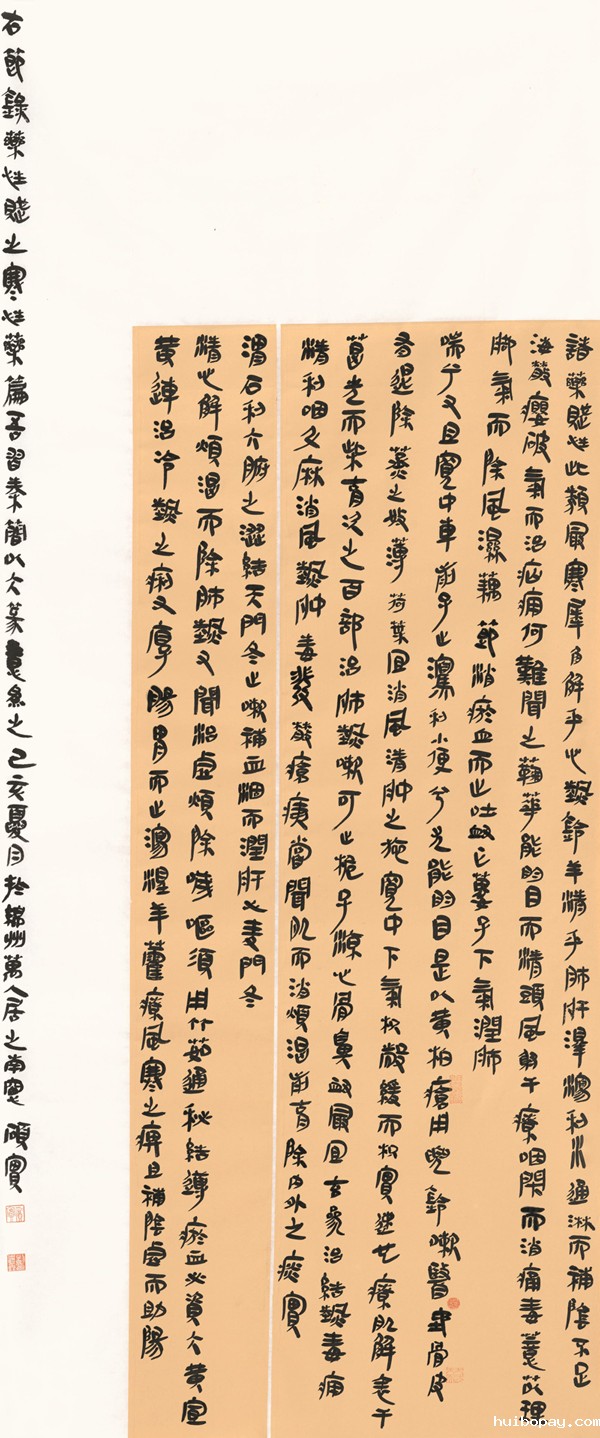 諸藥賦性此類最寒犀角解乎心熱鈴羊清乎肺肝澤瀉利水通淋而補陰不足
海散癭破氣而治疝痛何難聞之菊華能明目而清頭風射干療咽閉而消痈毒薏苡理
脚氣而除風濕藕節消瘀血而止吐衄瓜蔞子下氣潤肺
喘兮又且寬中車前子止瀉利小便兮尤能明目是以黃柏瘡用兜鈴嗽醫地骨皮
有退除蒸之效薄荷葉宜消風清肿之施寬中下氣枳殼緩而枳實速也療肌解表干
葛先而柴胡次之百部治肺熱嗽可止梔子涼心腎鼻衄最宜玄參治結熱毒痛
清利咽升麻消風熱肿毒發散瘡痍嘗聞肌而消煩渴前胡除內外之痰實
滑石利六腑之澀結天門冬止嗽補血涸而潤肝心麦門冬
清心解煩渴而除肺熱又聞治虛煩除噦嘔須用竹茹通秘結導瘀血必資大黃宣
黄連治冷熱之痢又厚腸胃而止瀉淫羊藿療風寒之痺且補陰虛而助陽
右節錄藥性賦之寒性藥篇吾習秦簡以今篆意為之己亥夏月於端州萬人居之南窗 碩實
huibopay.com